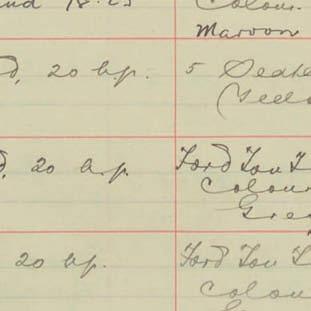 18.25 Colour.
Maroon
d, 20 h.p. 5 Seate
d, 20 h.p. Ford Ton T
Colour
Gre
20 h.p. Ford Ton
Colou